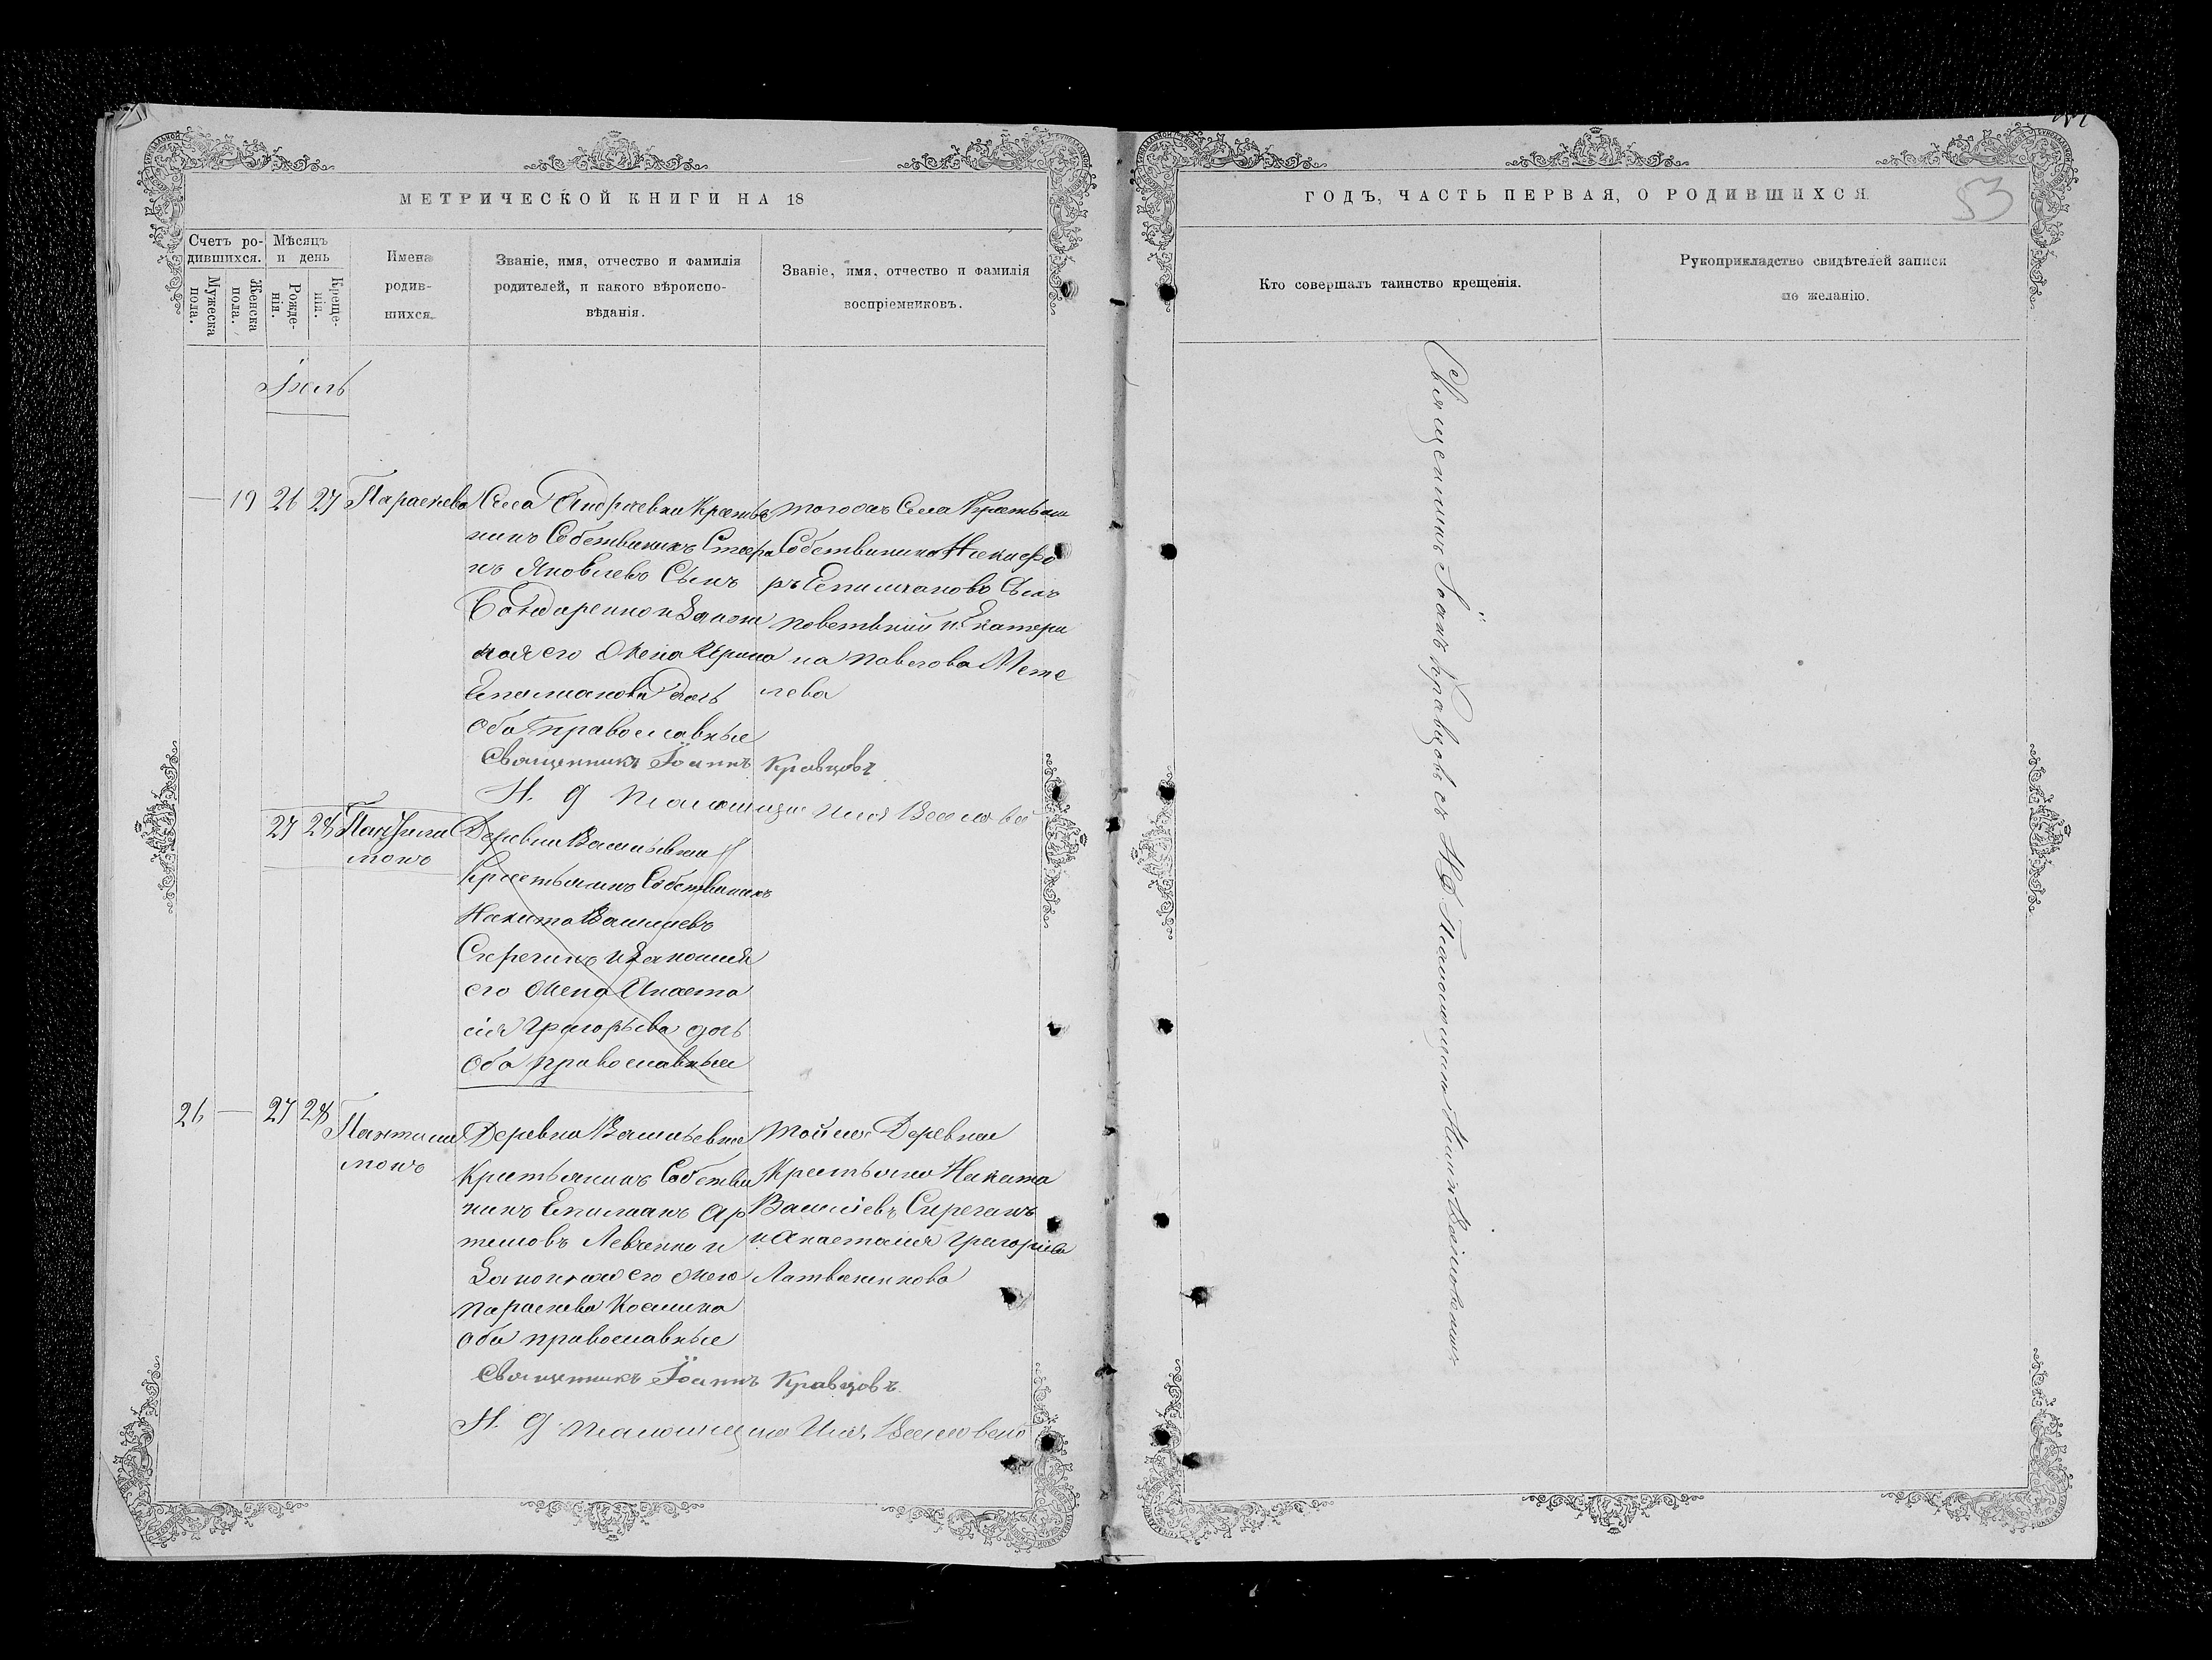 МЕТРИЧЕСКОЙ КНИГИ НА 18
Счетъ ро-
дившихся.
Мѣсяцъ
и день
Мужеска
пола.
Женска
пола.
Рожде-
нія.
Креще-
нія.
Имена
родив-
шихся
Званіе, имя, отчество и фамилія
родителей, и какого вѣроиспо-
вѣданія.
Званіе, имя, отчество и фамилія
воспріемниковъ.
Іюль
19 26 27 Параскева
Села Андреевки Крестья
нинъ Собственикъ Стефа
нъ Яковлевъ Сынъ
Бондаренко и Закон
ная его Жена Ирина
Епиманова Дочь
Оба Православные
тогожъ Села Крестьян
Собственика Никифо
ръ Епимановъ Сынъ
и Екатери
на Павлова Мете
лева
Священникъ Іоаннъ Кравцовъ
Н. Д. Псаломщик Илія
27 28
монъ
Деревни Васильевки
Крестьянинъ Собственикъ
Никита Васильевъ
Сиречинъ и Законная
его Жена Анаста
сія Григорьева дочь
Оба православные
26 27 28
Пантели
монъ
Деревни Васильевки
Крестьянинъ Собстве
никъ Епиманъ Ар
темовъ Левченко и
Законная его жена
Параскева Космина
Оба православные
Тойже Деревни
Крестьяне Никита
Василіевъ Сиречинъ
и Анастасія Григоріева
Литвиненкова
Священникъ Іоаннъ Кравцовъ.
Н. Д. Псаломщика Илія
ГОДЪ, ЧАСТЬ ПЕРВАЯ, О РОДИВШИХСЯ.
53
Кто совершалъ таинство крещенія.
Рукоприкладство свидѣтелей записи
по желанію.
Священникъ Іоанъ Кравцовъ съ Н Д Псаломщикомъ